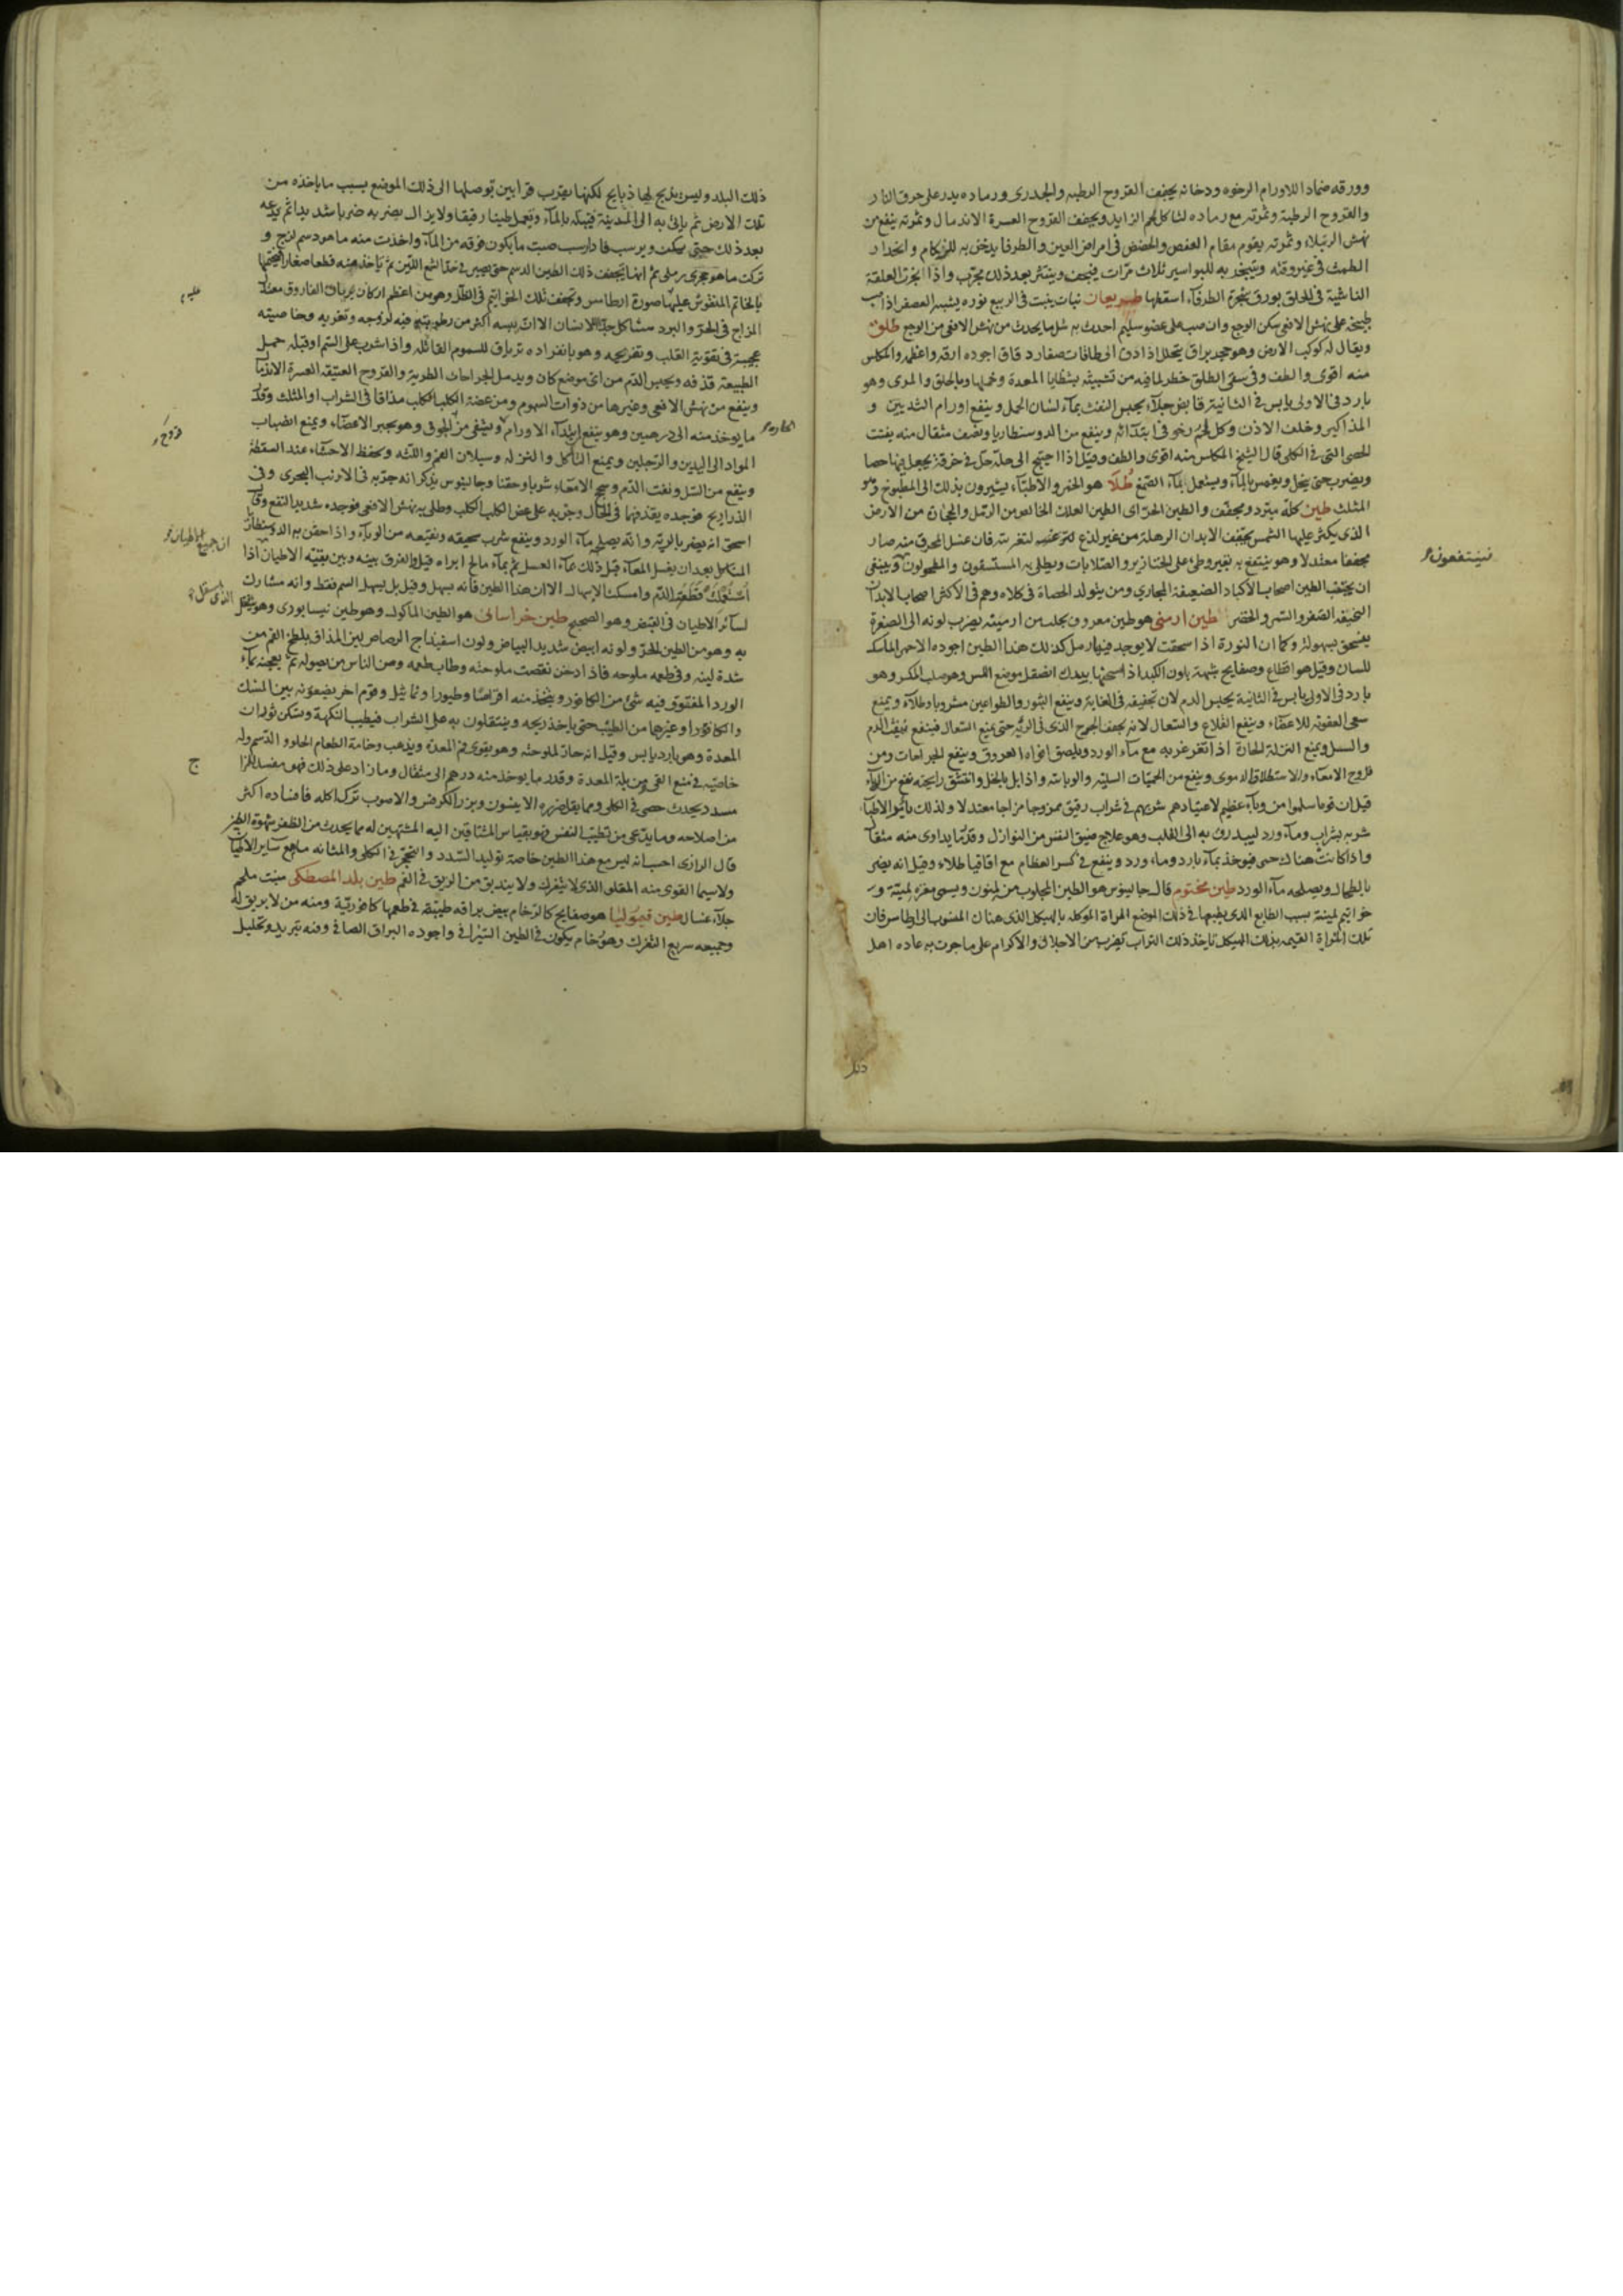 وورقه ضمادا للاورام الرخوه ودخانه يجفف القروح الرطبه والجدرى ورماده يذر على حرق النار
والقروح الرطبة وثمرته مع رماده لتاكل اللحم الزايد ويجفف القروح العسرة الاندمال وثمرته ينفع من
نهش الرتيلاء وثمرته يقوم مقام العفص والحضض فى امراض العين والطرفا يدخن به للزكام وانحدار
الطمث فى غير وقته ويتبخر به للبواسير ثلاث مرات فيجف وينتثر بعد ذلك مجرب واذا العلقة
الناشبة فى الحلق بورق شجرة الطرفاء اسقطها نبات ينبت فى الربيع نوره يشبه العصفر اذا صب
طبيخه على نهش الافعى سكن الوجع وان صب على عضو سليم احدث به مثل ما يحدث من نهش الافعى من الوجع طلق
ويقال له كوكب الارض وهو حجر براق يتحلل اذا دق الى طاقات صغار دقاق اجوده ارقه واعظمه والمكلس
منه اقوى والطف وفى سقى الطلق خطر لما فيه من تشبثه بشظايا المعدة وخملها وبالحلق والمرى وهو
بارد فى الاولى يابس فى الثانية قابض جلاء يحبس النفث بماء لسان الحمل وينفع اورام الثديين و
المذاكير وخلف الاذن وكل لحم رخو فى ابتدائه وينفع من الدوسنطاريا ونصف مثقال منه يفتت
الحصى التى فى الكلى قال الشيخ المكلس منه اقوى والطف وقيل اذا احتيج الى حله جعل فى خرقة يجعل فيها حصا
ويضرب حتى ينحل ويغمس بالماء ويستعمل بماء الصمغ طلا هو الخمر والاطباء يشيرون بذلك الى المطبوخ وهو
المثلث طين كله مبرد ومجفف والطين الحر اى الطين العلك الخالص من الرمل والحجارة من الارض
الذى يكثر عليها الشمس يجفف الابدان الرهلة من غير لذع لتغريته فان غسل المحرق منه صار
مجففا معتدلا وهو ينتفع به بقيروطى على الخنازير والصلابات ويطلى به المستسقون والمطحولون وينبغى
ان يجتنب الطين اصحاب الاكباد الضعيفة المجارى ومن يتولد الحصاة فى كلاه وهم فى الاكثر اصحاب الابدان
النحيفة الصفر والسمر والخضر طين ارمنى هو طين معروف يجلب من ارمينه يضرب لونه الى الصفرة
ينسحق بسهولة وكما ان النورة اذا سحقت لا يوجد فيها رمل كذلك هذا الطين اجوده الاحمر الماسك
للسان وقيل هو اقطاع وصفايح شبيهة بلون الكبد اذا مسحتها بيدك انصقل موضع اللمس وهو صلب المكسر وهو
بارد فى الاولى يابس فى الثانية يحبس الدم لان تجفيفه فى الغاية وينفع البثور والطواعين مشروبا وطلاء ويمنع
سعى العفونة للاعضاء وينفع القلاع والسعال لانه يجفف الجرح الذى فى الرئة حتى يمنع السعال فينفع نفث الدم
والسل ويمنع النزلة الحارة اذا تغرغر به مع ماء الورد ويلصق افواه العروق وينفع للجراحات ومن
قروح الامعاء والاستطلاق الدموى وينفع من الحميات السلية والوبائية واذا بل بالخل وانتشق رايحته نفع من الوباء
قيل ان قوما سلموا من وباء عظيم لاعتيادهم شربهم فى شراب رقيق ممزوجا مزاجا معتدلا ولذلك يامر الاطبا
شربه بشراب وماء ورد ليبدرق به الى القلب وهو علاج ضيق النفس من النوازل وقدر ما يداوى منه مثقال
واذا كانت هناك حمى فيوخذ بماء بارد وماء ورد وينفع فى كسر العظام مع اقاقيا طلاء وقيل انه يضر
بالطحال ويصلحه ماء الورد طين مختوم قال جالينوس هو الطين المجلوب من لمنون ويسمى مغرة لمنية و
خواتيم لمنية بسبب الطابع الذى يطبعها فى ذلك الموضع المراة الموكله بالهيكل الذى هناك المنسوب الى ارطامس فان
تلك المراة القيمة بذلك الهيكل تاخذ ذلك التراب بضرب من الاجلال والاكرام على ما جرت به عاده اهل
فينتفعون
ذلك
ذلك البلد وليس يذبح لها ذبايح لكنها يقرب قرابين توصلها الى ذلك الموضع بسبب ما ياخذه من
تلك الارض ثم ياتى به الى المدينة فيبله بالماء ويعمل طينا رقيقا ولا يزال يضربه ضربا شديدا ثم يدعه
بعد ذلك حتى يسكن ويرسب فاذا رسب صبت ما يكون فوقه من الماء واخذت منه ما هو دسم لزج و
تركت ما هو حجرى رملى ثم انها يجفف ذلك الطين الدسم حتى يصير فى حد الشمع اللين ثم ياخذ منه قطعا صغارا فيختمها
بالخاتم المنقوش عليها صورة ارطامس وتجفف تلك الخواتيم فى الظل وهو من اعظم اركان ترياق الفاروق معتدل
المزاج فى الحر والبرد مشاكل جبلة الانسان الا ان يبسه اكثر من رطوبته فيه لزوجه وتغريه وخاصيته
عجيبة فى تقوية القلب وتفريحه وهو بانفراده ترياق للسموم القاتله واذا شرب على السم او قبله حمل
الطبيعة قذفه ويحبس الدم من اى موضع كان ويدمل الجراحات الطرية والقروح العتيقه العسرة الاندمال
وينفع من نهش الافعى وغيرها من ذوات السموم ومن عضة الكلب الكلب مذاقا فى الشراب او المثلث وقدر
ما يوخذ منه الى درهمين وهو ينفع ابتداء الاورام وهو يجبر الاعضاء ويمنع انصباب
المواد الى اليدين والرجلين ويمنع التاكل والنزله وسيلان الفم واللثه ويحفظ الاحشاء عند السقطة
وينفع من السل ونفث الدم وسحج الامعاء شربا وحقنا وجالينوس يذكر انه جربه فى الارنب البحرى وفى
الذراريح فوجده يقذفهما فى الحال وجربه على عض الكلب الكلب وطلى به نهش الافعى فوجده شديد النفع وقال
اسحق انه يضر بالرية وانه يصلحه ماء الورد وينفع شرب سحيقه ونقيعه من الوباء واذا حقن به الدوسنطاريا
المتاكل بعد ان يغسل المعاء قبل ذلك بماء العسل ثم بماء مالح ابراه قيل والفرق بينه وبين بقيته الاطيان اذا
استعملت قطعت الدم وامسكت الاسهال الا ان هذا الطين فانه يسهل وقيل بل يسهل السم فقط وانه مشارك
لسائر الاطيان فى القبض وهو الصحيح طين خراسانى هو الطين الماكول وهو طين نيسابورى وهو
به وهو من الطين الحر ولونه ابيض شديد البياض ولون اسفيداج الرصاص لين المذاق يلطخ الفم من
شدة لينه وفى طعمه ملوحه فاذا دخن نقصت ملوحته وطاب طعمه ومن الناس من يصوله ثم يعجنه بماء
الورد المفتوق فيه شئ من الكافور ويتخذ منه اقراصا وطيورا وتماثيل وقوم اخر يضعونه بين المسك
والكافور او غيرهما من الطيب حتى ياخذ ريحه وينتقلون به على الشراب فيطيب النكهة ويسكن ثوران
المعدة وهو بارد يابس وقيل انه حار لملوحته وهو يقوى فم المعدة ويذهب وخامة الطعام الحلو والدسم وله
خاصيه فى منع القى من بلة المعدة وقدر ما يوخذ منه درهم الى مثقال وما زاد على ذلك فهو مفسد للمزاج
مسدد يحدث حصى فى الكلى ومما يقل ضرره الانيسون وبزر الكرفس والاصوب ترك اكله فافساده اكثر
من اصلاحه وما يدعى من تطييب النفس فهو بقياس المشتاقين اليه المشتهين له مما يحدث من الظفر بشهوة الطين
قال الرازى احسب انه ليس مع هذا الطين خاصة توليد السدد والتحجر فى الكلى والمثانه ما مع ساير الاطيان
ولا سيما القوى منه المقلو الذى لا يتفرك ولا يندبق من الريق فى الفم طين بلد المصطكى منبت ملحم
جلاء غسال طين قيموليا هو صفايح كالرخام بيض براقه طيبة فى طعمها كافورية ومنه من لا بريق له
وجميعه سريع التفرك وهو رخام يكون فى الطين السيرافى واجوده البراق الصافى وفيه تبريد وتحليل
الحاره
ان جميع الاطيان
ج